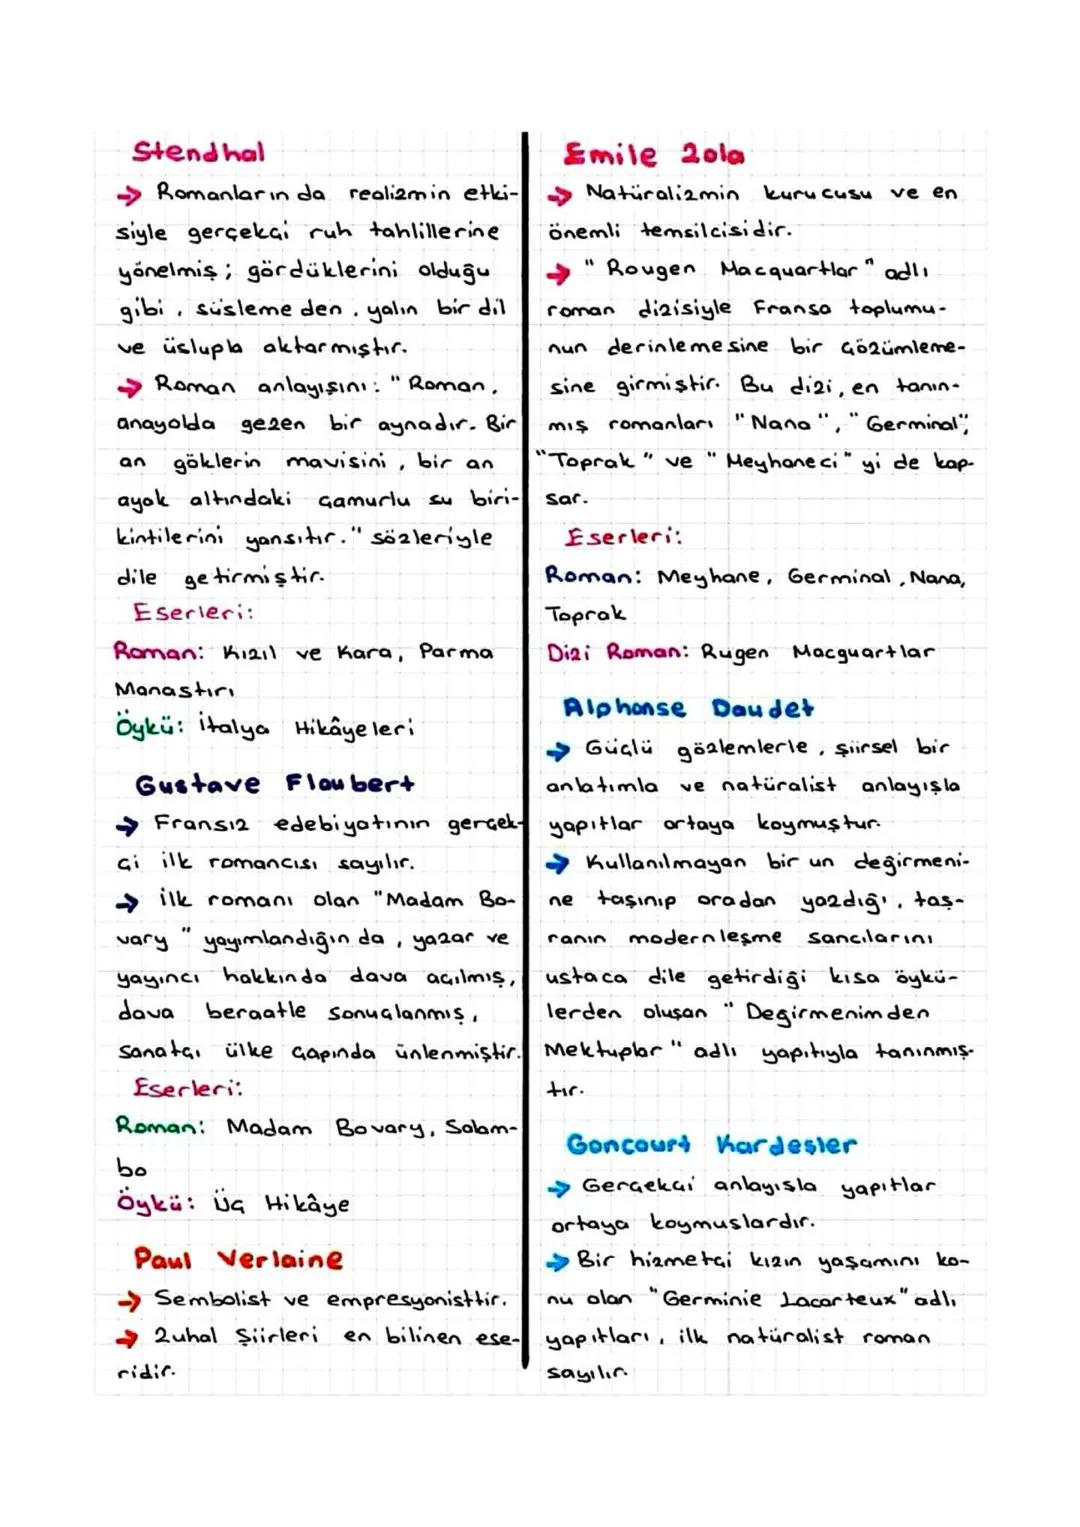 Stendhal
→ Romanlarında realizmin etki-
siyle gerçekçi ruh tahlillerine
yönelmiş; gördüklerini olduğu
gibi, süslemeden, yalın bir dil
ve üslupla aktarmıştır.
→ Roman anlayışını: "Roman,
anayolda gezen bir aynadır. Bir
an göklerin mavisini, bir an
ayak altındaki çamurlu su biri-
kintilerini yansıtır." sözleriyle
dile getirmiştir.
Eserleri:
Roman: Kızıl ve Kara, Parma
Manastırı
Öykü: İtalya Hikâyeleri
Gustave Flaubert
→ Fransız edebiyatının gerçek-
çi ilk romancısı sayılır.
→ İlk romanı olan "Madam Bo-
vary" yayımlandığında, yazar ve
yayıncı hakkında dava açılmış,
dava beraatle sonuçlanmış,
sanatçı ülke çapında ünlenmiştir.
Eserleri:
Roman: Madam Bovary, Salam-
bo
Öykü: Üç Hikâye
Paul Verlaine
→ Sembolist ve empresyonisttir.
→ Zuhal Şiirleri en bilinen ese-
ridir.
Emile Zola
→ Natüralizmin kurucusu ve en
önemli temsilcisidir.
→ "Rougen Macquartlar" adlı
roman dizisiyle Fransa toplumu-
nun derinlemesine bir çözümleme-
sine girmiştir. Bu dizi, en tanın-
mış romanları "Nana", "Germinal",
"Toprak" ve "Meyhaneci" yi de kap-
sar.
Eserleri:
Roman: Meyhane, Germinal, Nana,
Toprak
Dizi Roman: Rugen Macguartlar
Alphonse Daudet
→ Güçlü gözlemlerle, şiirsel bir
anlatımla ve natüralist anlayışla
yapıtlar ortaya koymuştur.
→ Kullanılmayan bir un değirmeni-
ne taşınıp oradan yazdığı, taş-
ranın modernleşme sancılarını
ustaca dile getirdiği kısa öykü-
lerden oluşan "Değirmenimden
Mektuplar" adlı yapıtıyla tanınmış-
tır.
Goncourt Kardeşler
→ Gerçekçi anlayışla yapıtlar
ortaya koymuslardır.
→ Bir hizmetçi kızın yaşamını ko-
nu alan "Germinie Lacarteux" adlı
yapıtları, ilk natüralist roman
sayılır.